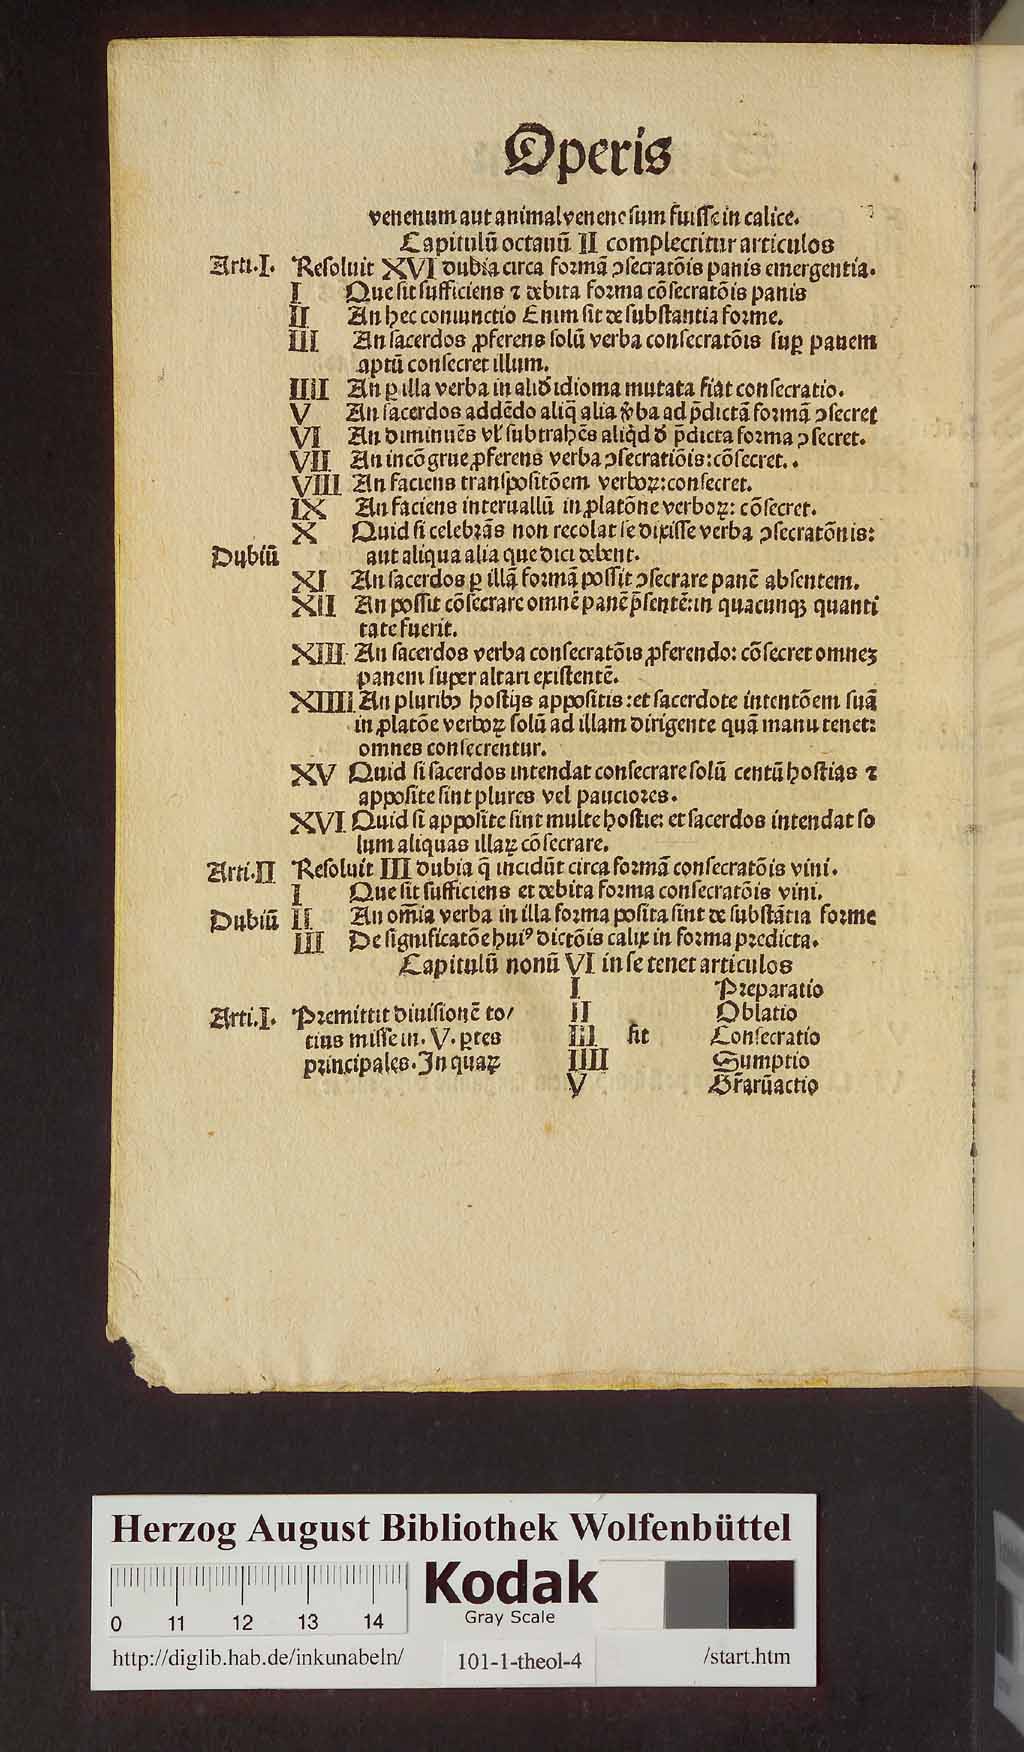 Operis
venenum aut animal venenesum fuisse in calice.
Capitulū octauū II complectitur articulos
Arti.I. Resoluit XVI dubia circa formā ↄsecratōis panis emergentia.
I Que sit sufficiens ⁊ debita forma cōsecratōis panis
II An hec coniunctio Enim sit de substantia forme.
III An sacerdos ꝓferens solū verba consecratōis suꝑ panem
aptū consecret illum.
IIII An ꝑ illa verba in aliđ idioma mutata fiat consecratio.
V An sacerdos addēdo aliq̄ alia v̓ba ad p̄dictā formā ↄsecret
VI An diminuēs vł subtrahēs aliqd̓ đ p̄dicta forma ↄsecret.
VII An incōgrue ꝓferens verba ↄsecratiōis: cōsecret..
VIII An faciens transpositōem verboꝝ: consecret.
IX An faciens interuallū in ꝓlatōne verboꝝ: cōsecret.
X Quid si celebrās non recolat se dixisse verba ↄsecratōnis:
Dubiū aut aliqua alia que dici debent.
XI An sacerdos ꝑ illā formā possit ↄsecrare panē absentem.
XII An possit cōsecrare omnē panē p̄sentē: in quacunqꝫ quanti
tate fuerit.
XIII An sacerdos verba consecratōis ꝓferendo: cōsecret omneꝫ
panem super altari existentē.
XIIII An pluribꝰ hostijs appositis: et sacerdote intentōem suā
in ꝓlatōe verboꝝ solū ad illam dirigente quā manu tenet:
omnes consecrentur.
XV Quid si sacerdos intendat consecrare solū centū hostias ⁊
apposite sint plures vel pauciores.
XVI Quid si apposite sint multe hostie: et sacerdos intendat so
lum aliquas illaꝝ cōsecrare.
Arti.II Resoluit III dubia q̄ incidūt circa formā consecratōis vini.
I Que sit sufficiens et debita forma consecratōis vini.
Dubiū II An om̄ia verba in illa forma posita sint de substātia forme
III De significatōe huiꝰ dictōis calix in forma predicta.
Capitulū nonū VI in se tenet articulos
I Preparatio
Arti.I. Premittit diuisionē to/ II Oblatio
tius misse in. V. ꝑtes III sit Consecratio
principales. In quaꝝ IIII Sumptio
V Gr̄aꝝ̄actio
Herzog August Bibliothek Wolfenbüttel
Kodak
Gray Scale
0 11 12 13 14
http://diglib.hab.de/inkunabeln/ 101-1-theol-4 /start.htm